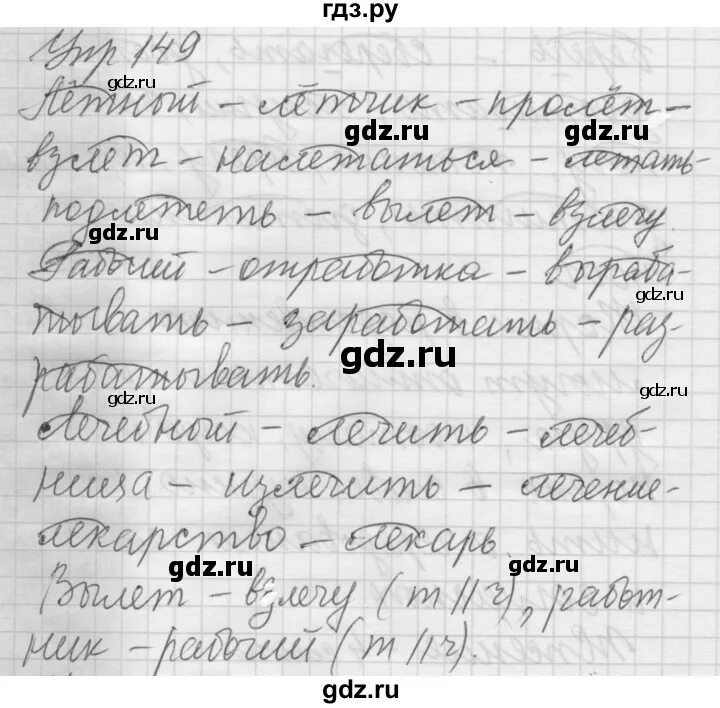 гдз.ру
Упр 149
Лётный – лётчик – пролёт –
взлёт – налетаться – летать –
подлететь – вылет – взлечу.
Рабочий – отработка – выраба-
тывать – заработать – раз-
рабатывать.
Лечебный – лечить – лечеб-
ница – излечить – лечение –
лекарство – лекарь.
Вылет – взлечу (т // ч), работ-
ник – рабочий (т // ч).
gdz.ru
gdz.ru
gdz.ru
gdz.ru
gdz.ru
gdz.ru
gdz.ru
gdz.ru
gdz.ru
gdz.ru
gdz.ru
gdz.ru
gdz.ru
gdz.ru